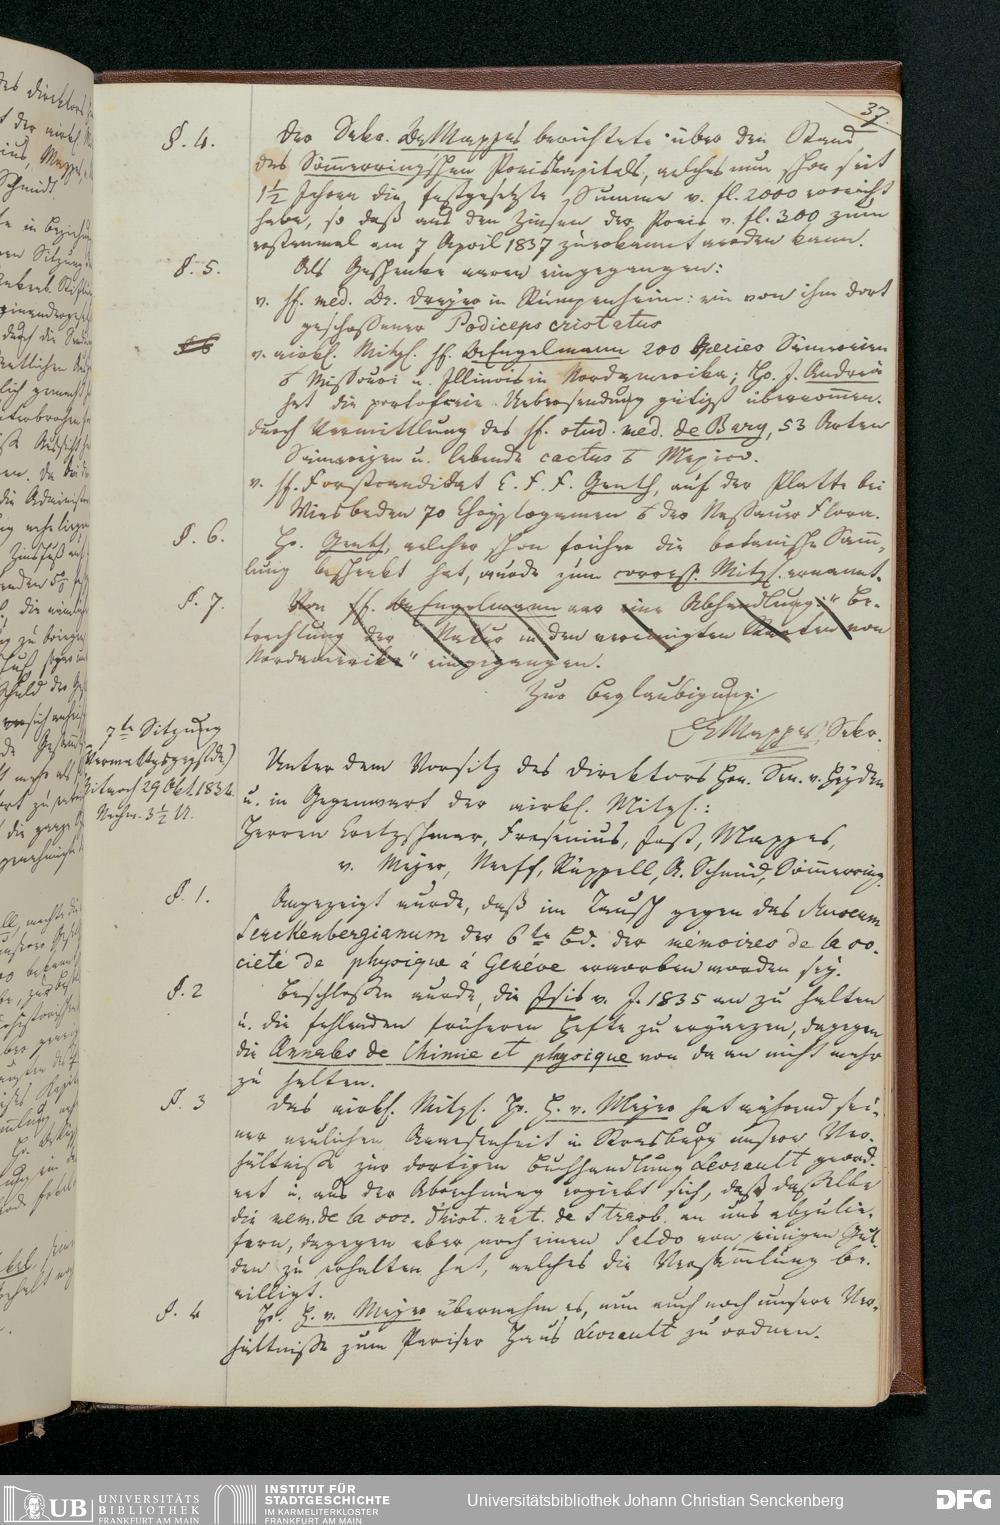 37.
§. 4. Der Sekr. Dr Mappes berichtete über den Stand
des Sömmerringschen Preiskapitals, welches nun schon seit
1½ Jahren die festgesetzte Summe v. fl. 2000 erreicht
habe, so daß aus den Zinsen der Preis v. fl. 300 zum
erstenmal am 7 April 1837 zuerkannt werden kann.
§. 5. Als Geschenke waren eingegangen:
v. H. med. Dr. Dreyer in Rumpenheim: ein von ihm dort
geschossener Podiceps cristatus
v. wirkl. Mitgl. H. Dr Engelmann 200 Species Sämereien
Missouri u. Illinois in Nordamerika; Hr. J. Andreä
hat die portofreie Uebersendung gütigst übernommen.
durch Vermittlung des H. stud. med. de Bary, 53 Arten
Sämereyen u. lebende cactus Mexico.
v. H. Forstcandidat C. F. F. Genth, auf der Platte bei
Wiesbaden 70 Chryptogamen der Nassauer Flora.
§. 6. Hr. Genth, welcher schon früher die botanische Samm-
lung beschenkt hat, wurde zum corresp. Mitgl. ernannt.
§. 7. Von H. Dr Engelmann war eine Abhandlung: "Be-
trachtung der Natur in den vereinigten Staaten von
Nordamerika" eingegangen.
Zur Beglaubigung:
Dr Mappes, Sekr.
7te Sitzung
(Verwaltungssitzde)
Mitwoch 29 Okt. 1834.
Nachm. 3½ U.
Unter dem Vorsitz des Direktors Hrn. Sen. v. Heyden
u. in Gegenwart der wirkl. Mitgl.:
Herren Cretzschmar, Fresenius, Jost, Mappes,
v. Meyer, Neeff, Rüppell, A. Schmid, Sömmerring.
§. 1. Angezeigt wurde, daß im Tausch gegen das Museum
Senckenbergianum der 6te Bd. der mémoires de la so-
cieté de physique á Genéve erworben worden sey.
§. 2 Beschlossen wurde, die Isis v. J. 1835 an zu halten
u. die fehlenden früheren Hefte zu ergänzen, dagegen
die Annales de Chimie et physique von da an nicht mehr
zu halten.
§. 3 Das wirkl. Mitgl. Hr. H. v. Meyer hat während sei-
ner neulichen Anwesenheit in Strasburg unsere Ver-
hältnisse zur dortigen Buchhandlung Levrault geord-
net u. aus der Abrechnung ergiebt sich, daß dasselbe
die mem. de la soc. d'hist. nat. de Strasb. an uns abzulie-
fern, dagegen aber noch einen Saldo von einigen Gul-
den zu erhalten hat, welches die Versammlung be-
willigt.
§. 4 Hr. H. v. Meyer übernahm es, nun auch noch unsere Ver-
hältnisse zum Pariser Haus Levrault zu ordnen.
UB UNIVERSITÄTS
BIBLIOTHEK
FRANKFURT AM MAIN
INSTITUT FÜR
STADTGESCHICHTE
IM KARMELITERKLOSTER
FRANKFURT AM MAIN
Universitätsbibliothek Johann Christian Senckenberg
DFG